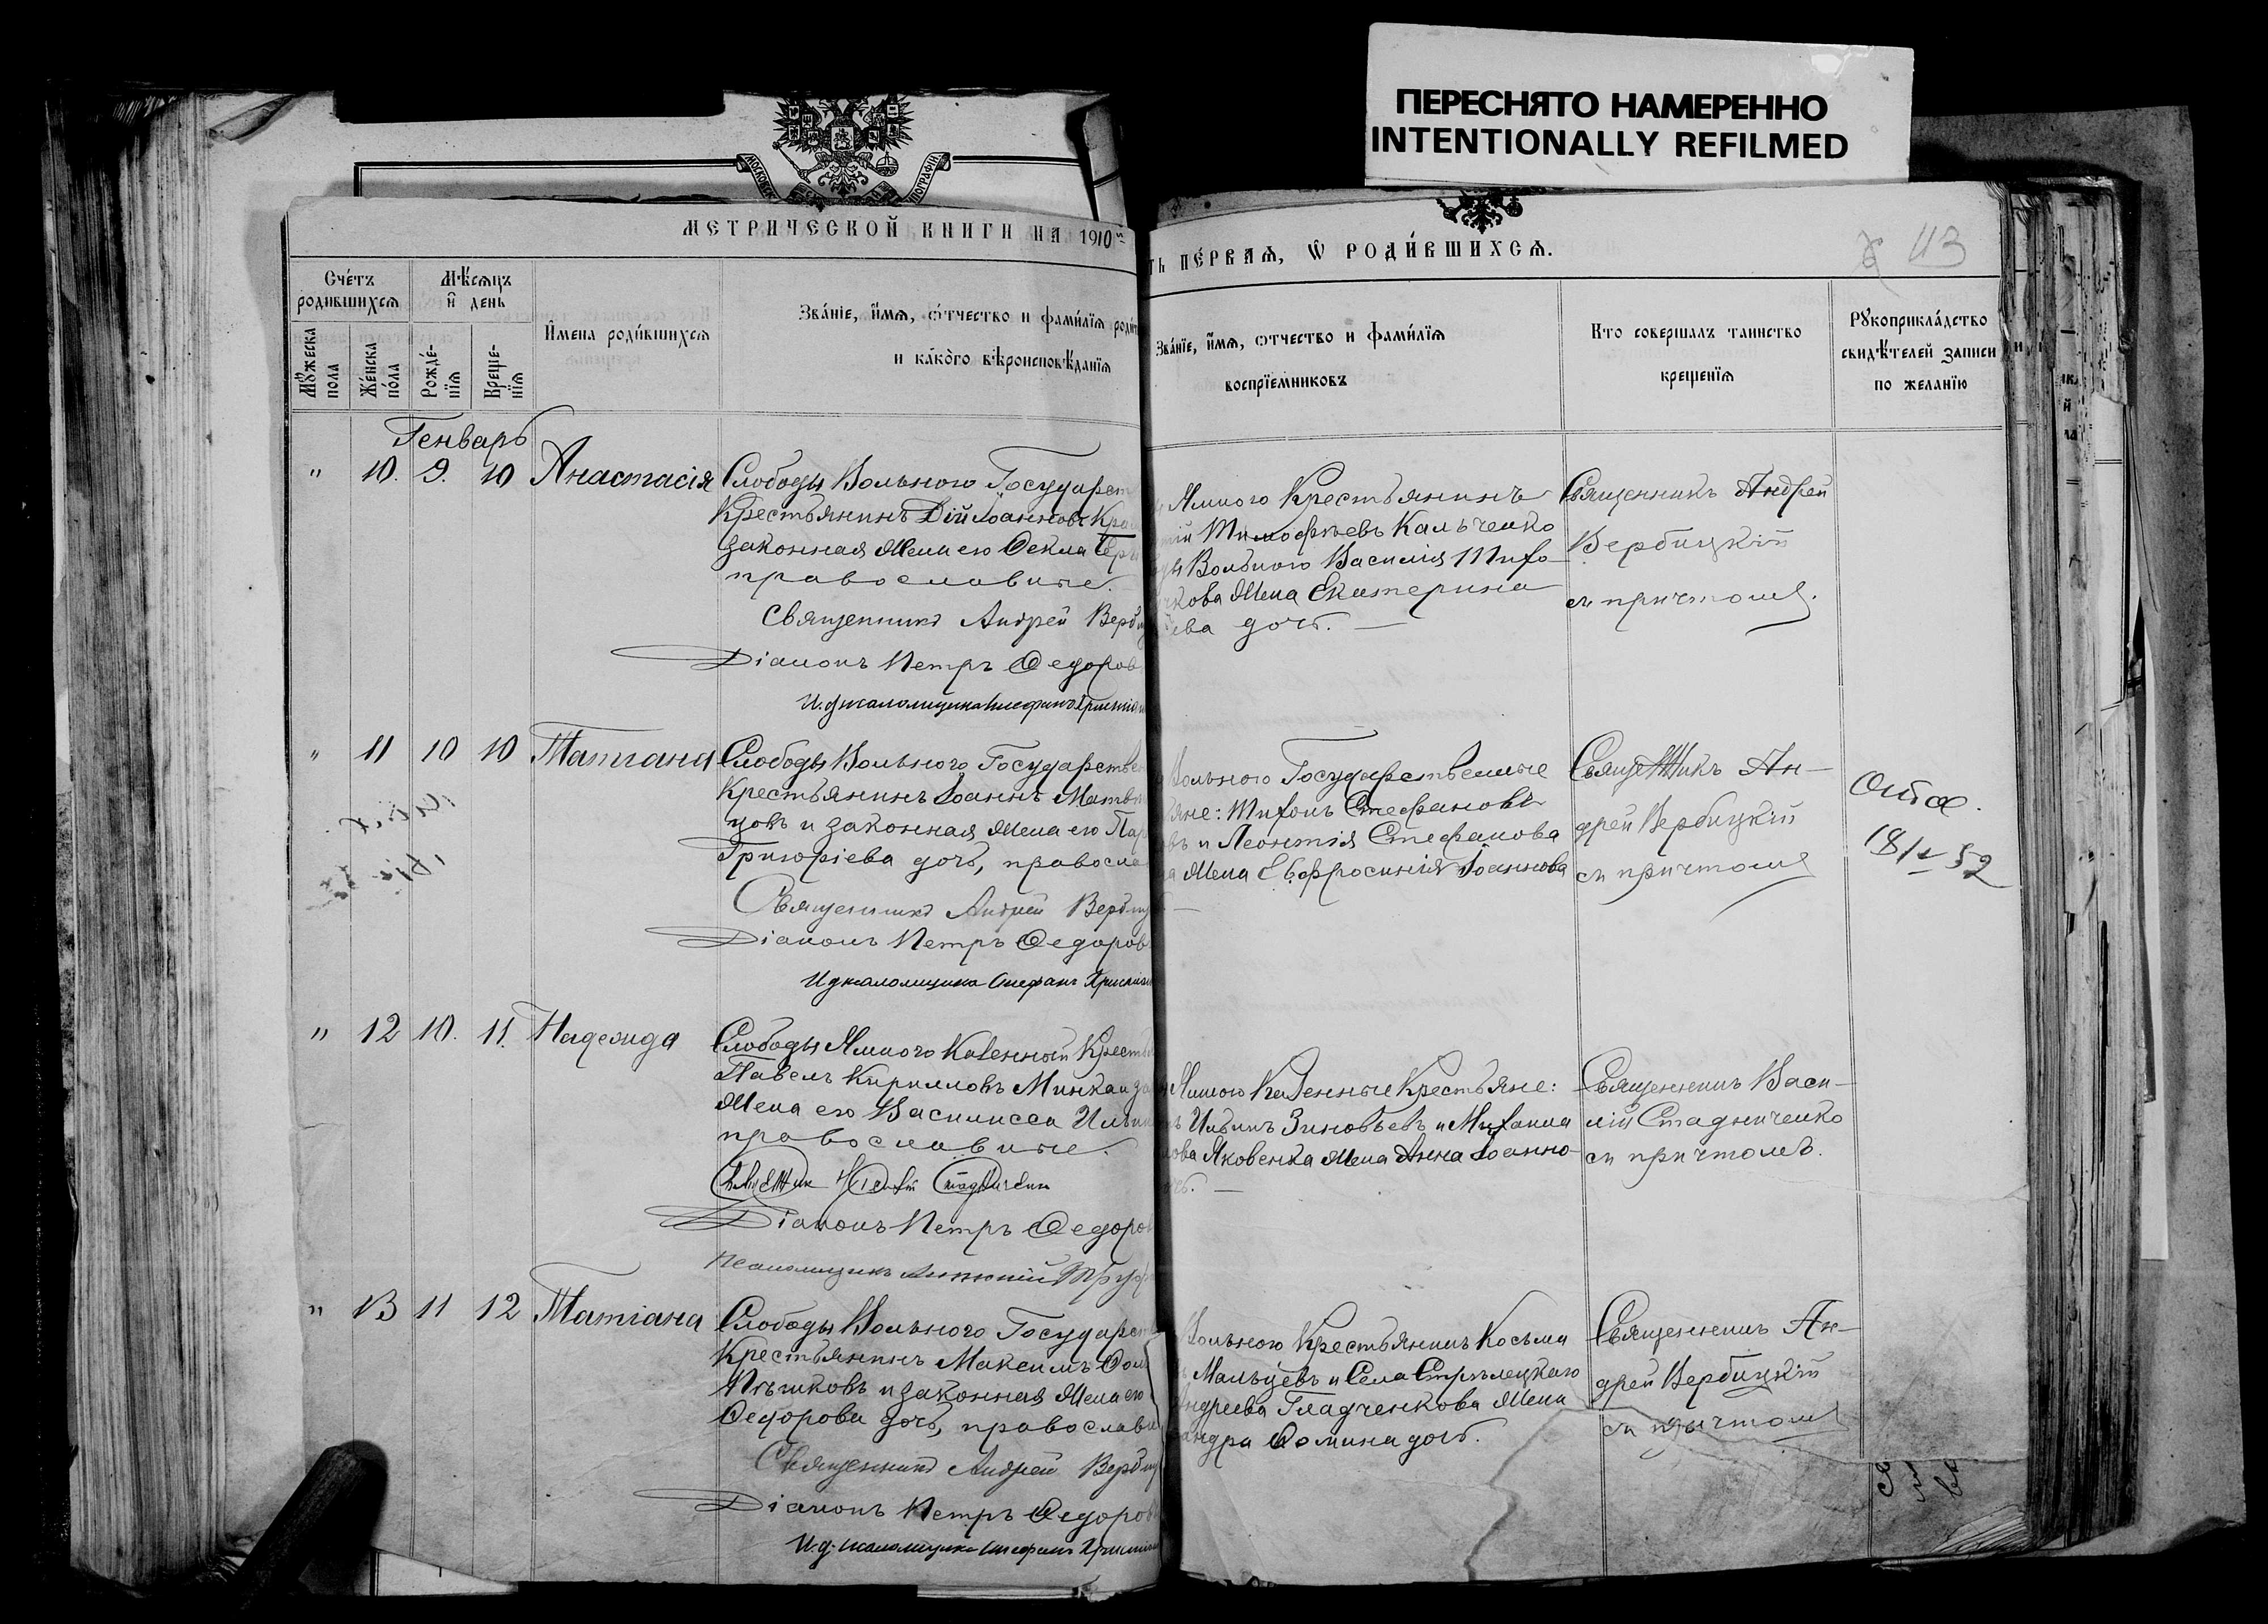 ПЕРЕСНЯТО НАМЕРЕННО
INTENTIONALLY REFILMED
МЕТРИЧЕСКОЙ КНИГИ НА 1910
ТЬ ПЕ́РВАѦ, Ѡ РОДИ́ВШИХСѦ.
43
Сче́тъ родившихсѧ
Мѣ́сѧцъ и҆ день
Мꙋ́жеска пола
Же́нска по́ла
Рожде́-нїѧ
Креще-нїѧ
И҆мена роди́вшихсѧ
Зва́нїе, и҆́мѧ, ѻ҆́тчество и фами́лїѧ роди
и како́го вѣроисповѣ́данїѧ
Зва́нїе, и҆́мѧ, ѻтчество и фами́лїѧ
воспрїе́мниковъ
Кто совершалъ таинство
креще́нїѧ
Рꙋкоприкла́дство
свидѣ́телей записи
по желанїю
Генварь
" 10. 9. 10 Анастасія
Слободы Вольного Государст
Крестьянинъ Дій Іоанновъ
законная жена его Ѳекла
православные.
Священникъ Андрей Верби
Діаконъ Петръ Ѳедоров
Ямного Крестьянинъ
Тимофѣевъ Кальченко
Вольного Василія Тихо
кова жена Екатерина
ева дочь.
Священникъ Андрей
Вербицкій
съ причтомъ.
" 11 10 10 Татіана
Слободы Вольного Государствен
Крестьянинъ Іоаннъ Матв
цовъ и законная жена его Пар
Григоріева дочь, правосла
Священникъ Андрей Вербиц
Діаконъ Петръ Ѳедоров
И д псаломщика Стефанъ
Вольного Государственные
яне: Тихонъ Стефановъ
въ и Леонтія Стефанова
жена Евфросинія Іоаннова
Священникъ Ан-
дрей Вербицкій
съ причтомъ
18/V 52
" 12 10. 11. Надежда
Слободы Ямного Казенный Кресть
Павелъ Кирилловъ Минка и за
жена его Василисса Ильин
православные.
Діаконъ Петръ Ѳедоров
Псаломщикъ
Ямного Казенные Крестьяне:
Ильинъ Зиновьевъ и Михаила
ова Яковенка жена Анна Іоанно-
Священникъ Васи-
лій Стадниченко
съ причтомъ.
" 13 11 12 Татіана
Слободы Вольного Государст
Крестьянинъ Максимъ Ѳом
и законная жена его
Ѳедорова дочь, православн
Священникъ Андрей Вербиц
Діаконъ Петръ Ѳедоров
И. д. псаломщика Стефанъ
Вольного Крестьянинъ Косьма
Мальцевъ и Села Стрѣлецкаго
Андреева Гладченкова жена
андра Ѳомина дочь.
Священникъ Ан-
дрей Вербицкій
съ причтомъ